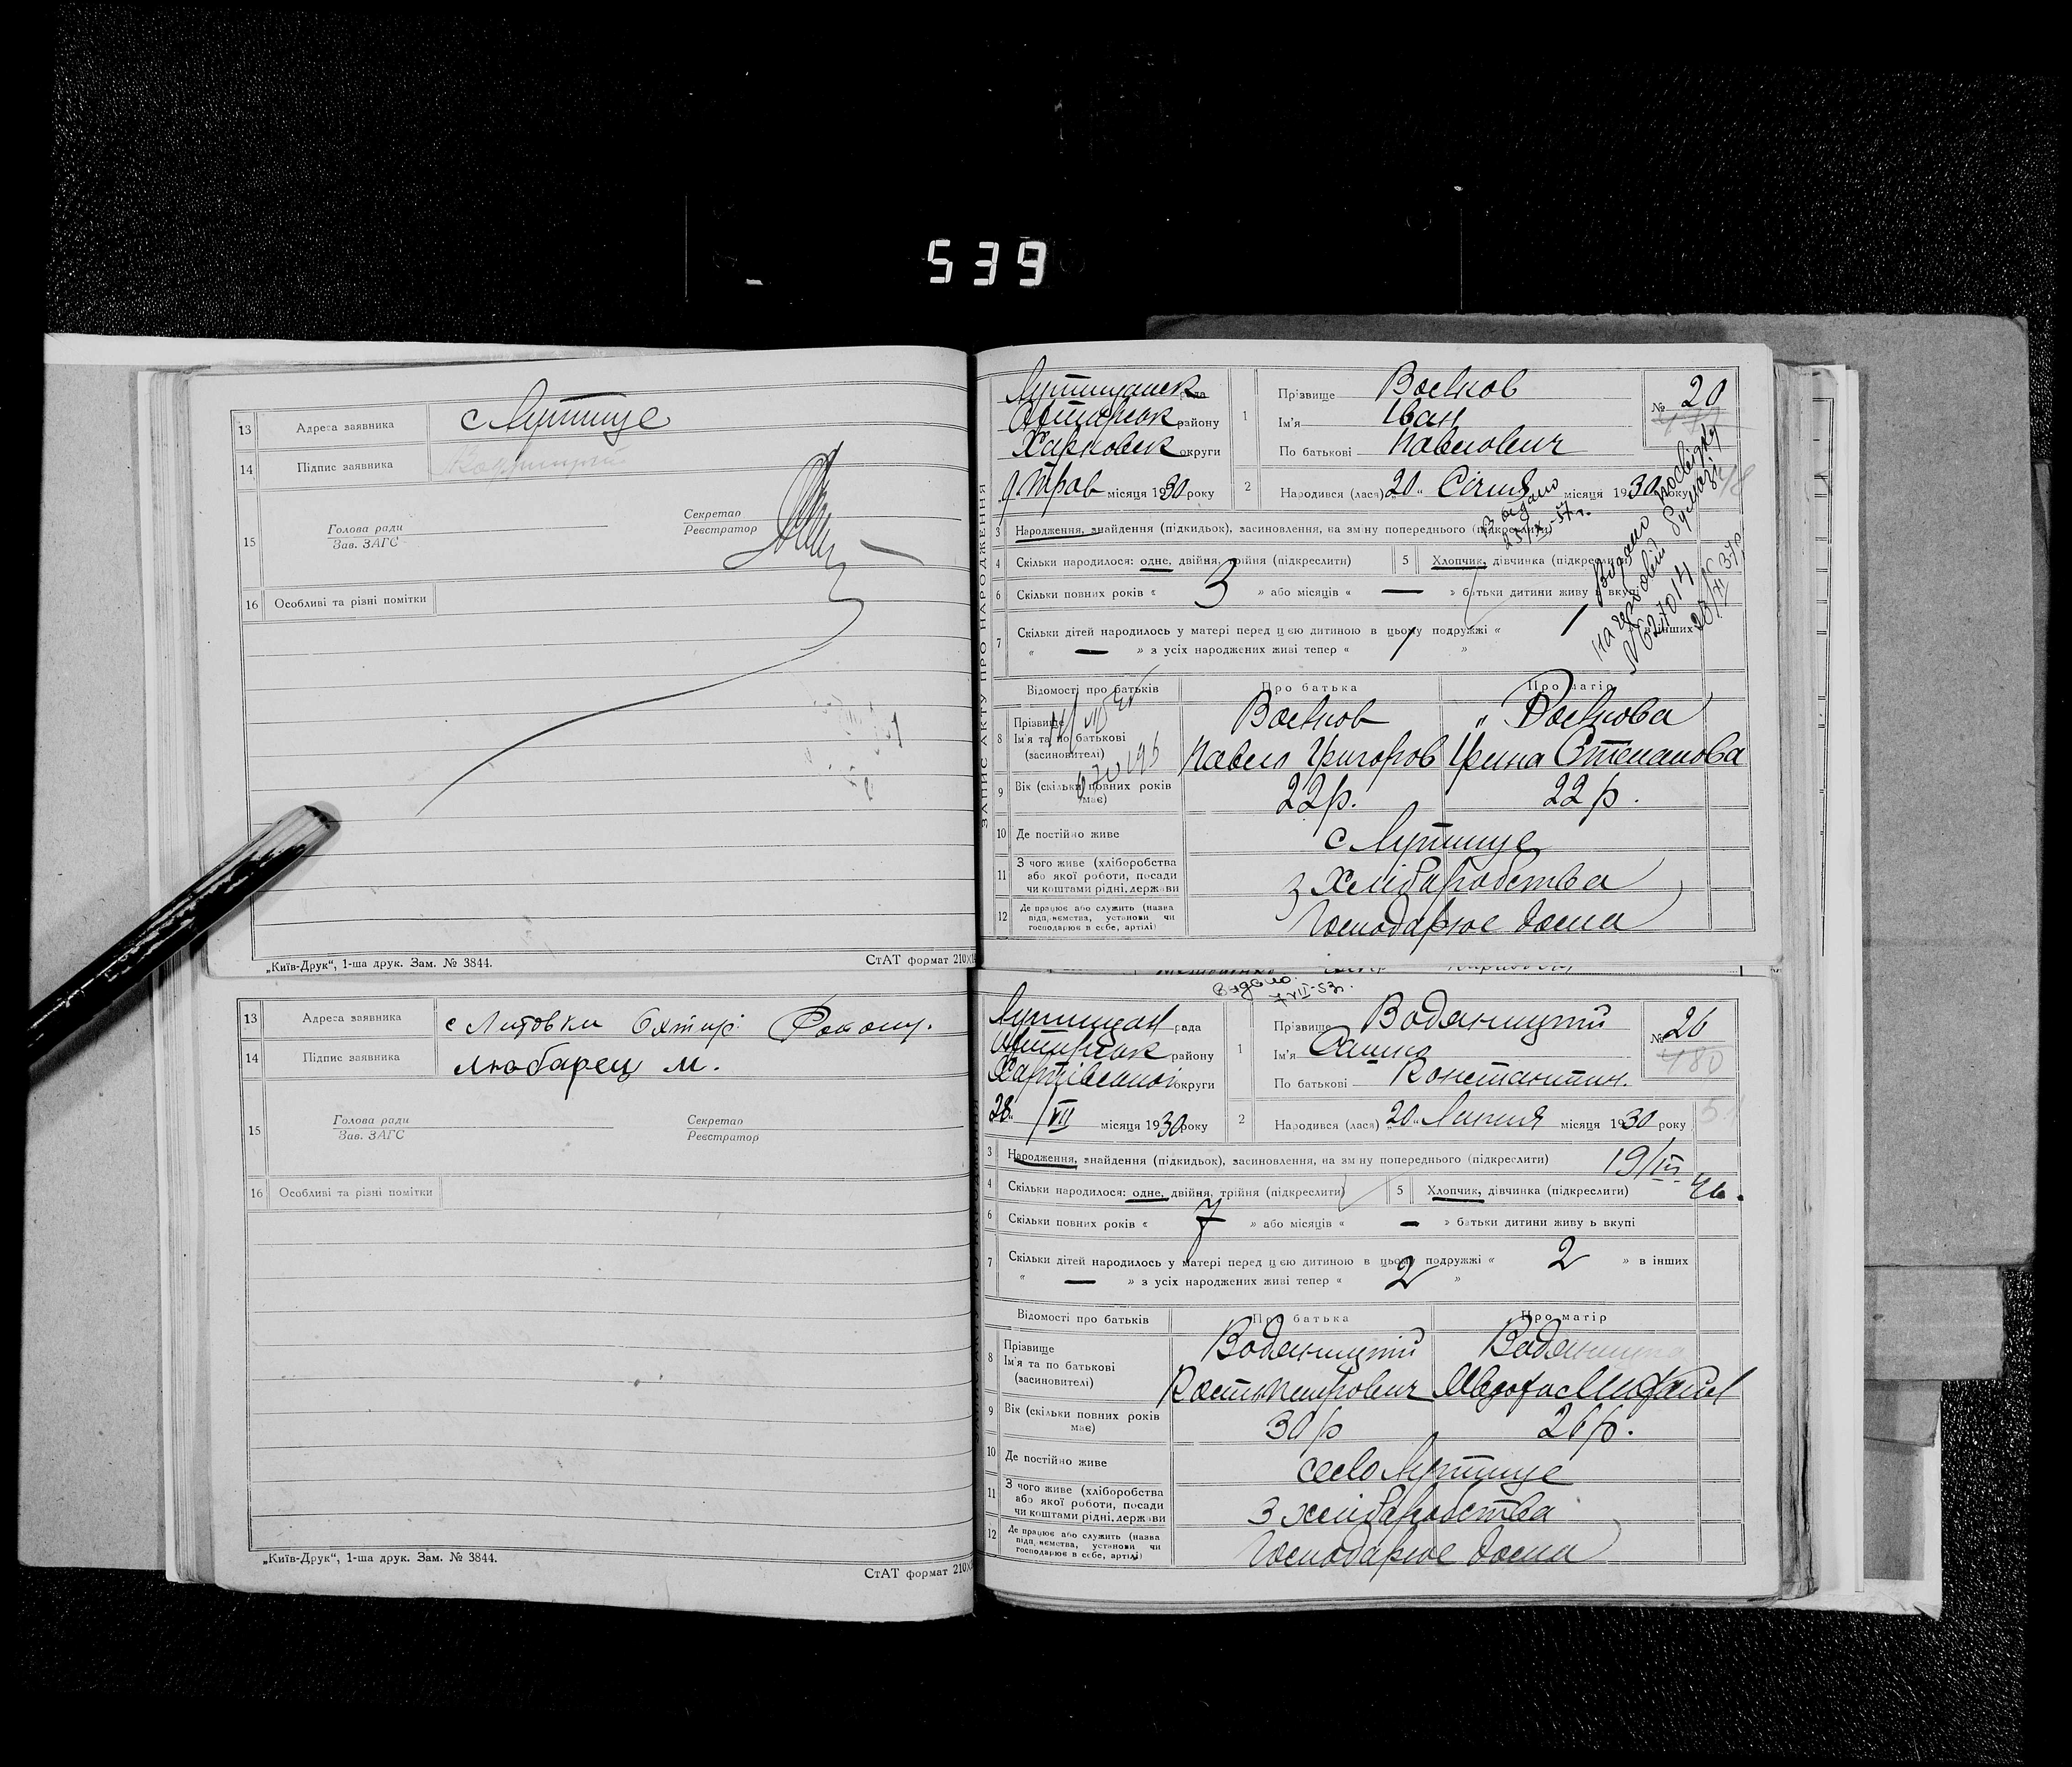 539
13 Адреса заявника с Лутище
14 Підпис заявника
15 Голова ради
Зав. ЗАГС
Секретар
Реєстратор
16 Особливі та різні помітки
„Київ-Друк“, 1-ша друк. Зам. № 3844.
СтАТ формат 210
ЗАПИС АКТУ ПРО НАРОДЖЕННЯ
рада
району
округи
9 Трав місяця 1930 року
1 Прізвище
Ім'я Іван
По батькові Павлович
№ 20
2 Народився (лася) „20“ Січня місяця 1930 року
Видано
3 Народження, знайдення (підкидьок), засиновлення, на зміну попереднього (підкреслити)
4 Скільки народилося: одне, двійня, трійня (підкреслити)
5 Хлопчик, дівчинка (підкреслити)
6 Скільки повних років « 3 » або місяців « — » батьки дитини живуть вкупі
7 Скільки дітей народилось у матері перед цією дитиною в цьому подружжі « 1 » в інших
« — » з усіх народжених живі тепер « 1 »
Видано
Відомості про батьків
Про батька
Про матір
8 Прізвище
Ім'я та по батькові
(засиновителі)
Павло Григоров
Степанова
9 Вік (скільки повних років має) 22 р. 22 р.
10 Де постійно живе с Лутище
11 З чого живе (хліборобства
або якої роботи, посади
чи коштами рідні, держави
з хліборобства
12 Де працює або служить (назва
підприємства, установи чи
господарює в себе, артілі)
Господарює дома
13 Адреса заявника с Литовки
14 Підпис заявника Любарец М.
15 Голова ради
Зав. ЗАГС
Секретар
Реєстратор
16 Особливі та різні помітки
„Київ-Друк“, 1-ша друк. Зам. № 3844.
СтАТ формат 210
Видано
7 VII-53р.
рада
району
округи
28 / VII місяця 1930 року
1 Прізвище Водяницький
Ім'я
По батькові Константин.
№ 26
480
2 Народився (лася) „20“ Липня місяця 1930 року
3 Народження, знайдення (підкидьок), засиновлення, на зміну попереднього (підкреслити)
4 Скільки народилося: одне, двійня, трійня (підкреслити)
5 Хлопчик, дівчинка (підкреслити)
6 Скільки повних років « 7 » або місяців « — » батьки дитини живуть вкупі
7 Скільки дітей народилось у матері перед цією дитиною в цьому подружжі « 2 » в інших
« — » з усіх народжених живі тепер « 2 »
Відомості про батьків
Про батька
Про матір
8 Прізвище
Ім'я та по батькові
(засиновителі)
Водяницький Водяницька
9 Вік (скільки повних років має) 30 р 26 р.
10 Де постійно живе село Лутище
11 З чого живе (хліборобства
або якої роботи, посади
чи коштами рідні, держави
З хліборобства
12 Де працює або служить (назва
підприємства, установи чи
господарює в себе, артілі)
Господарює дома